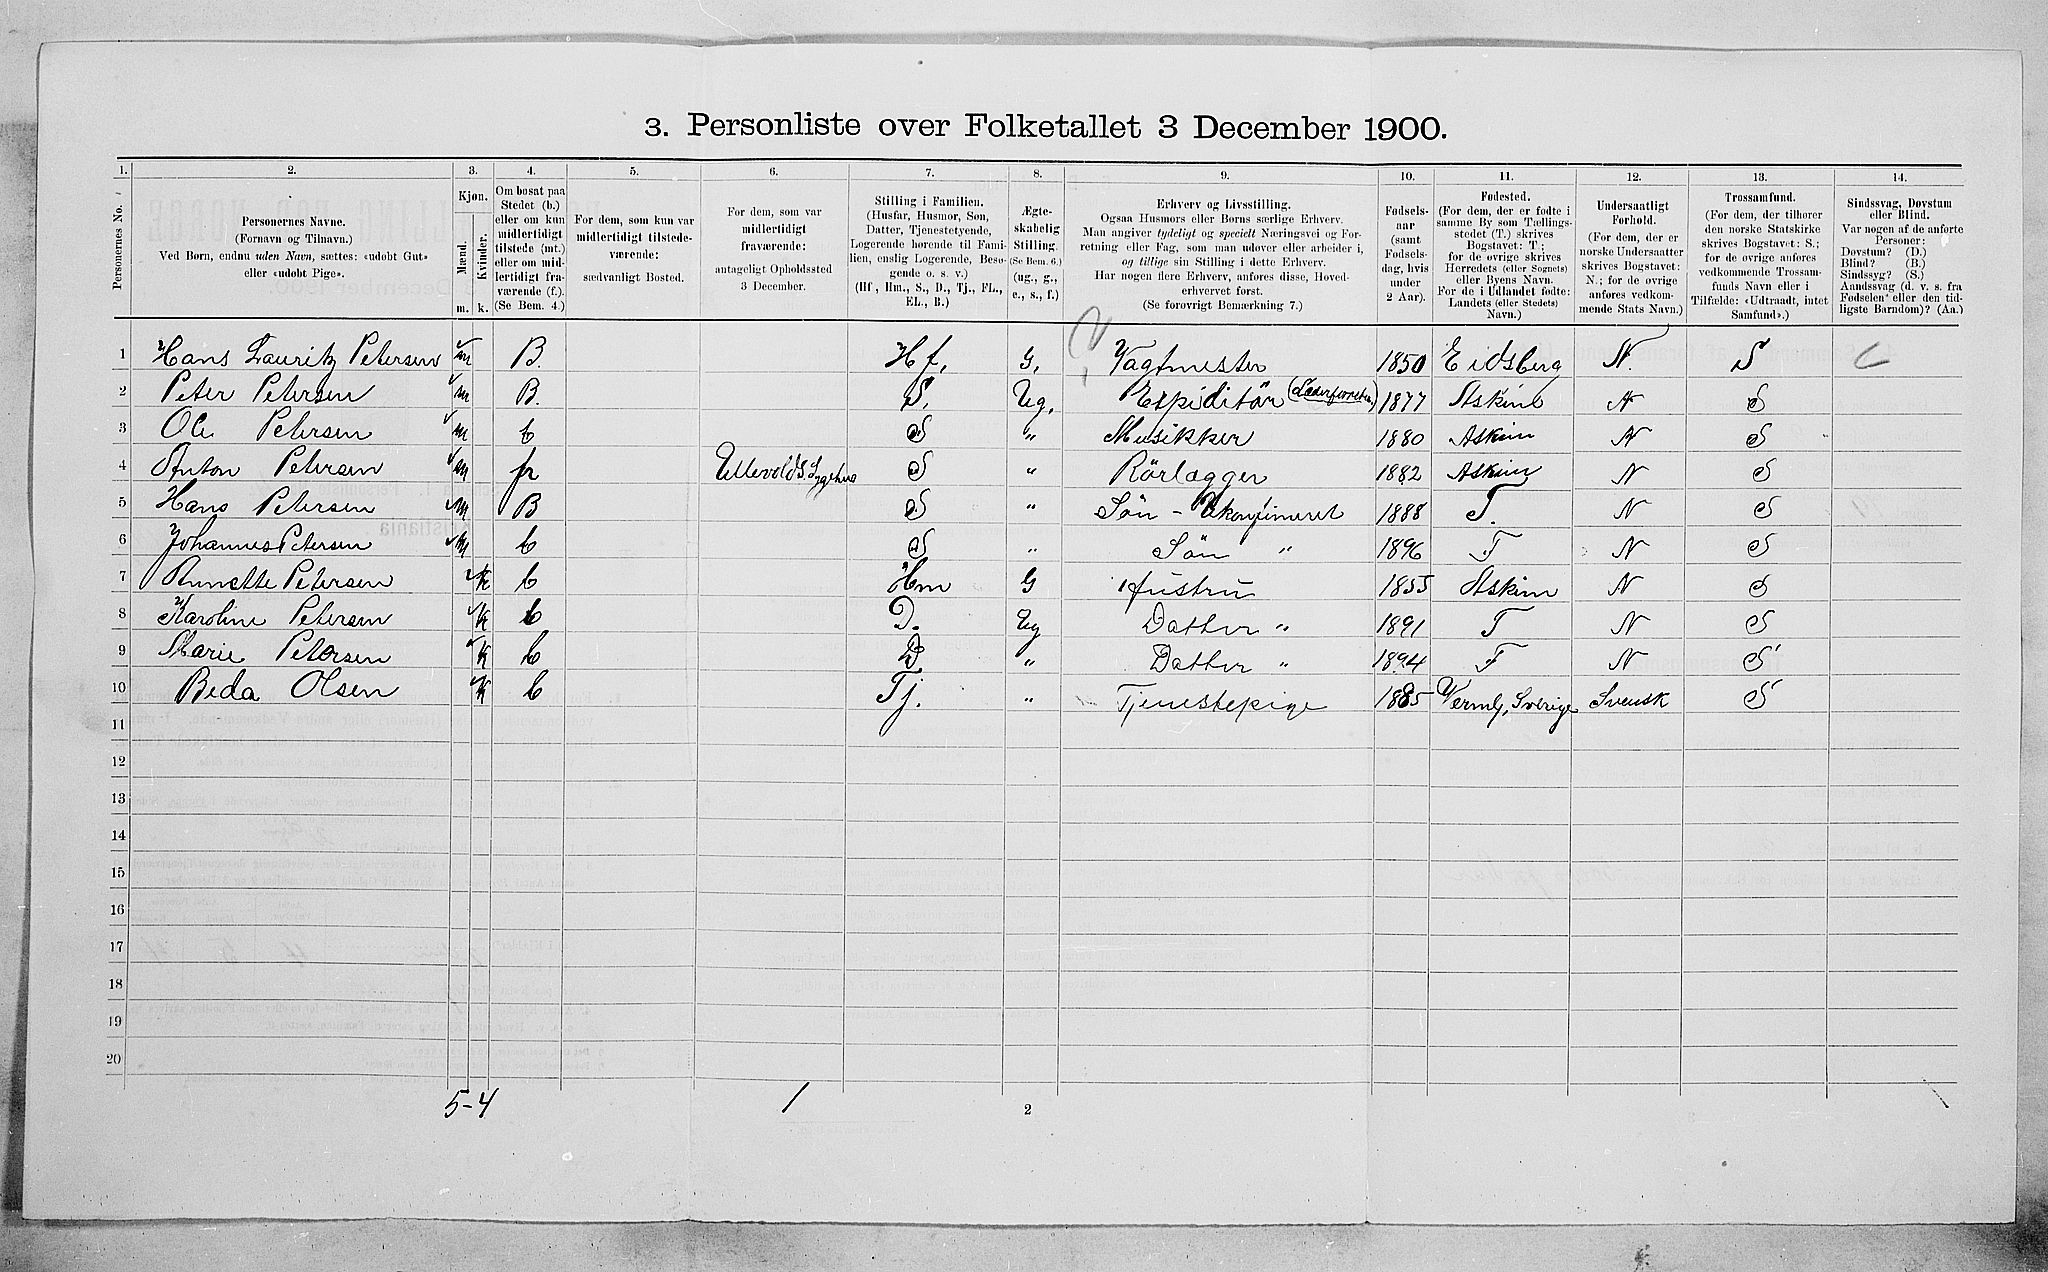 3. Personliste over Folketallet 3 December 1900.
1. 2. 3. 4. 5. 6. 7. 8. 9. 10. 11. 12. 13. 14.
Personernes No.
Personernes Navne.
(Fornavn og Tilnavn.)
Ved Børn, endnu uden Navn, sættes: «udøbt Gut»
eller «udøbt Pige».
Kjøn.
Mænd.
Kvinder.
m. k.
Om bosat paa
Stedet (b.)
eller om kun
midlertidigt
tilstede (mt.)
eller om mid-
lertidigt fra-
værende (f.)
(Se Bem. 4.)
For dem, som kun var
midlertidigt tilstede-
værende:
sædvanligt Bosted.
For dem, som var
midlertidigt
fraværende:
antageligt Opholdssted
3 December.
Stilling i Familien.
(Husfar, Husmor, Søn,
Datter, Tjenestetyende,
Logerende hørende til Fami-
lien, enslig Logerende, Besø-
gende o. s. v.)
(Hf, Hm., S., D., Tj., FL.,
EL., B.)
Ægte-
skabelig
Stilling.
(Se Bem. 6.)
(ug., g.,
e., s., f.)
Erhverv og Livsstilling.
Ogsaa Husmors eller Børns særlige Erhverv.
Man angiver tydeligt og specielt Næringsvei og For-
retning eller Fag, som man udøver eller arbeider i,
og tillige sin Stilling i dette Erhverv.
Har nogen flere Erhverv, anføres disse, Hoved-
erhvervet først.
(Se forøvrigt Bemærkning 7.)
Fødsels-
aar
(samt
Fødsels-
dag, hvis
under
2 Aar).
Fødested.
(For dem, der er fødte i
samme By som Tællings-
stedet (T.) skrives
Bogstavet: T;
for de øvrige skrives
Herredets (eller Sognets)
eller Byens Navn.
For de i Udlandet fødte:
Landets (eller Stedets)
Navn.)
Undersaatligt
Forhold.
(For dem, der er
norske Undersaatter
skrives Bogstavet:
N.; for de øvrige
anføres vedkom-
mende Stats Navn.)
Trossamfund.
(For dem, der tilhører
den norske Statskirke
skrives Bogstavet: S.;
for de øvrige anføres
vedkommende Trossam-
funds Navn eller i
Tilfælde: «Udtraadt, intet
Samfund».)
Sindssvag, Døvstum
eller Blind.
Var nogen af de anførte
Personer:
Døvstum? (D.)
Blind? (B.)
Sindssyg? (S.)
Aandssvag (d. v. s. fra
Fødselen eller den tid-
ligste Barndom)? (Aa.)
1 Hans Lauritz Petersen m B. Hf, G, Vagtmester 1850 Eidsberg N. S
2 Peter Petersen m B. S, Ug, Expeditør 1877 Askim N S
3 Ole Petersen m b S " Musikker 1880 Askim N S
4 Anton Petersen m fr Ullevolds Sygehus S " Rörlægger 1882 Askim N S
5 Hans Petersen m B S " Sön - Ukonfirmeret 1888 T. N S
6 Johannes Petersen m b S " Sön " 1896 T N S
7 Annette Petersen k b Hm G Hustru 1855 Askim N S
8 Karoline Petersen k b D. Ug Datter " 1891 T N S
9 Marie Petersen k b D. " Datter " 1894 T N S
10 Beda Olsen k b Tj. " Tjenestepige 1885 Verml, Sverige Svensk S
11
12
13
14
15
16
17
18
19
20
5-4 1
2